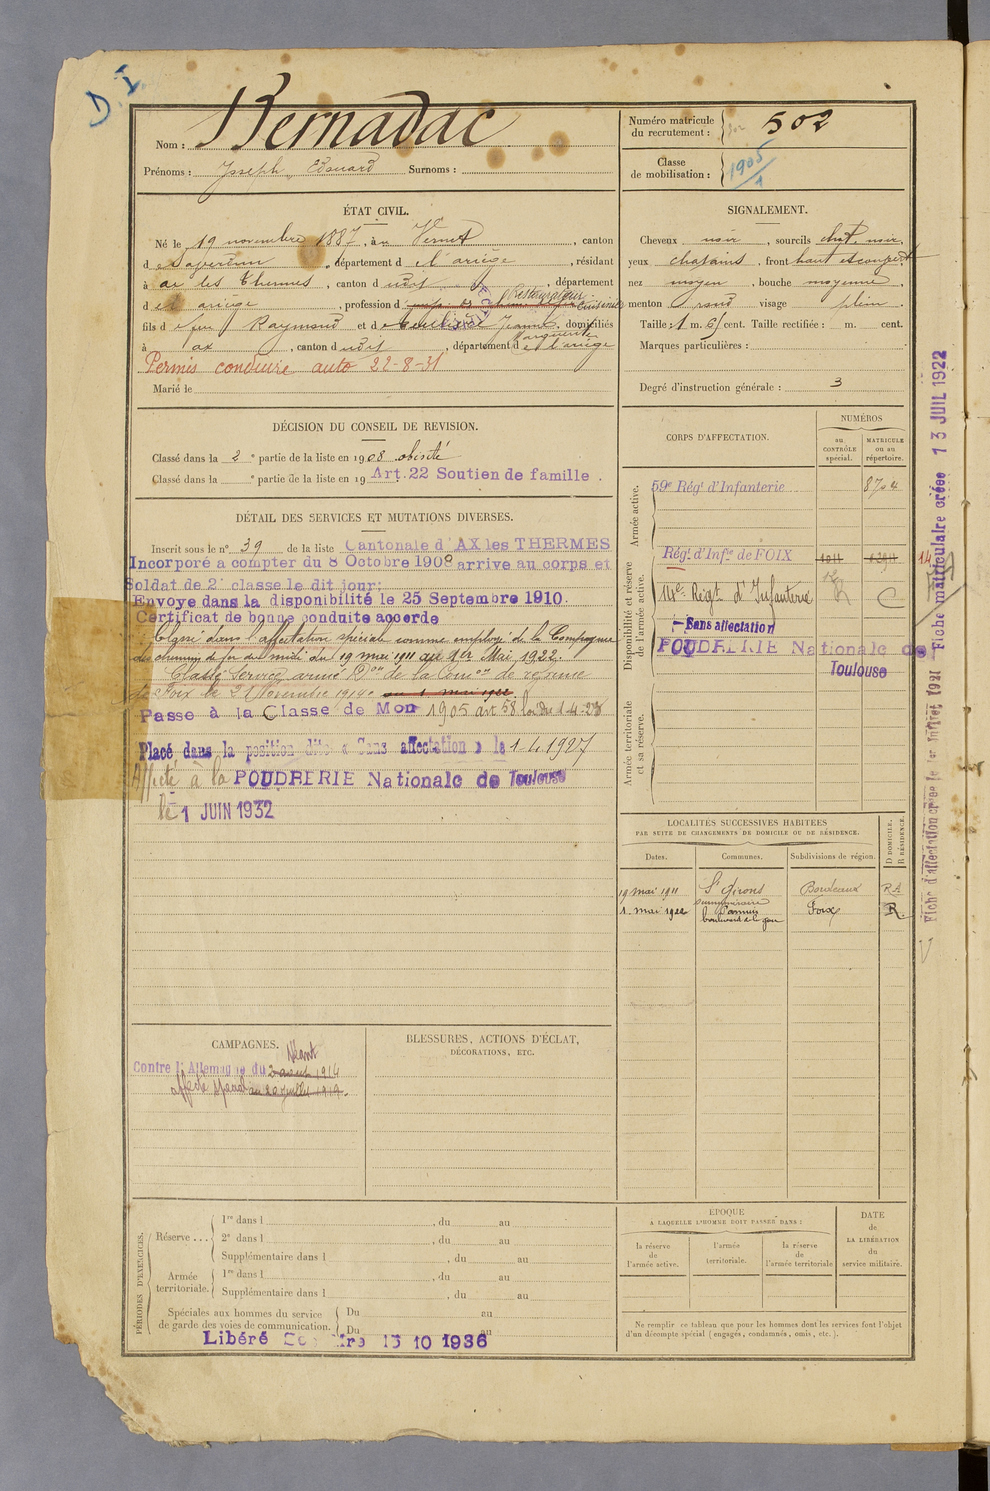 D I
Nom : Bernadac
Prénoms : Joseph, Edouard Surnoms :
Numéro matricule du recrutement : 502
Classe de mobilisation : 1905
ÉTAT CIVIL.
Né le 19 novembre 1887, à Vernet, canton
de Saverdun, département de l'ariège, résidant
à ax les Thermes, canton d udit, département
d el ariège, profession d Restaurateur Cuisinier
fils d e feu Raymond et d Jeanne Marguerite, domiciliés
à ax, canton d udit, département d e l'ariège
Permis conduire auto 22-8-31
Marié le
SIGNALEMENT.
Cheveux noir, sourcils chat. noir,
yeux chatains, front haut et
nez moyen, bouche moyenne,
menton rond visage plein
Taille : 1 m. 61 cent. Taille rectifiée : m. cent.
Marques particulières :
Degré d'instruction générale : 3
DÉCISION DU CONSEIL DE REVISION.
Classé dans la 2e partie de la liste en 1908 obésité
Classé dans la e partie de la liste en 19 Art. 22 Soutien de famille.
DÉTAIL DES SERVICES ET MUTATIONS DIVERSES.
Inscrit sous le n° 39 de la liste Cantonale d'AX les THERMES
Incorporé a compter du 8 Octobre 1908 arrive au corps et
Soldat de 2e classe le dit jour;
Envoye dans la disponibilité le 25 Septembre 1910.
Certificat de bonne conduite accorde
Classé dans l'affectation spéciale comme employé de la Compagnie
des chemins de fer du midi du 19 mai 1911 au 1er Mai 1922.
Classé Service armé Don de la Comon de réforme
de Foix le 21 Novembre 1914. au 1 mai 1922
Passe à la Classe de Mon 1905 art 58 loi du 1-4-23
Placé dans la position dite « Sans affectation » le 1-4-1927
Affecté à la POUDRERIE Nationale de Toulouse
le 1 JUIN 1932
CORPS D'AFFECTATION.
NUMÉROS
au CONTRÔLE spécial.
MATRICULE ou au répertoire.
Armée active.
59e Régt d'Infanterie 8704
Disponibilité et réserve de l'armée active.
Régt d'Infie de FOIX 1011
14e Régt d'Infanterie
Sans affectation
POUDRERIE Nationale de
Toulouse
Armée territoriale et sa réserve.
Fiche d'affectation créée le 1er Juillet 1921 Fiche matriculaire créée 13 JUIL 1922
LOCALITÉS SUCCESSIVES HABITÉES
PAR SUITE DE CHANGEMENTS DE DOMICILE OU DE RÉSIDENCE.
Dates. Communes. Subdivisions de région. D DOMICILE. R RÉSIDENCE.
19 mai 1911 St Girons Bordeaux RA
1. mai 1922 Pamiers Foix R.
CAMPAGNES.
Néant
Contre l'Allemagne du 2 août 1914
affecté spécial
BLESSURES, ACTIONS D'ÉCLAT,
DÉCORATIONS, ETC.
PÉRIODES D'EXERCICES.
Réserve ...
1re dans l , du au
2e dans l , du au
Supplémentaire dans l , du au
Armée territoriale.
1re dans l , du au
Supplémentaire dans l , du au
Spéciales aux hommes du service de garde des voies de communication.
Du au
Du au
Libéré 15 10 1936
ÉPOQUE
A LAQUELLE L'HOMME DOIT PASSER DANS :
la réserve de l'armée active.
l'armée territoriale.
la réserve de l'armée territoriale
DATE de LA LIBÉRATION du service militaire.
Ne remplir ce tableau que pour les hommes dont les services font l'objet
d'un décompte spécial (engagés, condamnés, omis, etc.).